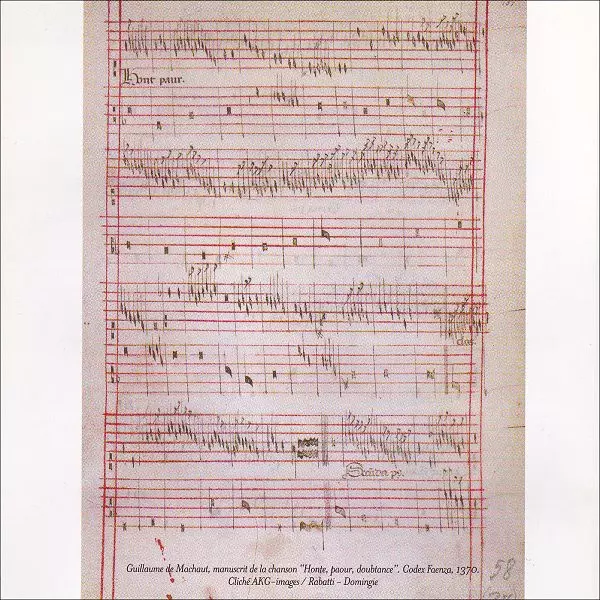 Hont paur.
clos.
Secũda ps.
Guillaume de Machaut, manuscrit de la chanson "Honte, paour, doubtance". Codex Faenza, 1370.
Cliché AKG-images / Rabatti - Domingie
58